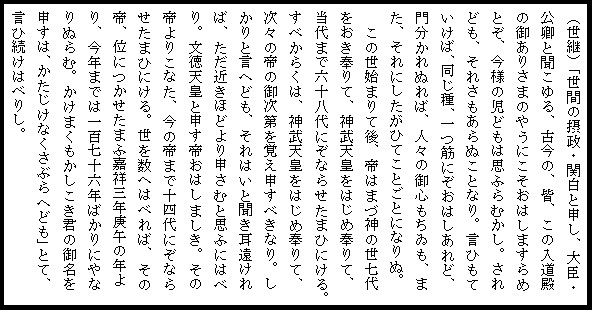 （世継）「世間の摂政・関白と申し、大臣・
公卿と聞こゆる、古今の、皆、この入道殿
の御ありさまのやうにこそおはしますらめ
とぞ、今様の児どもは思ふらむかし。され
ども、それさもあらぬことなり。言ひもて
いけば、同じ種、一つ筋にぞおはしあれど、
門分かれぬれば、人々の御心もちゐも、ま
た、それにしたがひてことごとになりぬ。
この世始まりて後、帝はまづ神の世七代
をおき奉りて、神武天皇をはじめ奉りて、
当代まで六十八代にぞならせたまひにける。
すべからくは、神武天皇をはじめ奉りて、
次々の帝の御次第を覚え申すべきなり。し
かりと言へども、それはいと聞き耳遠けれ
ば、ただ近きほどより申さむと思ふにはべ
り。文徳天皇と申す帝おはしましき。その
帝よりこなた、今の帝まで十四代にぞなら
せたまひにける。世を数へはべれば、その
帝、位につかせたまふ嘉祥三年庚午の年よ
り、今年までは一百七十六年ばかりにやな
りぬらむ。かけまくもかしこき君の御名を
申すは、かたじけなくさぶらへども」とて、
言ひ続けはべりし。